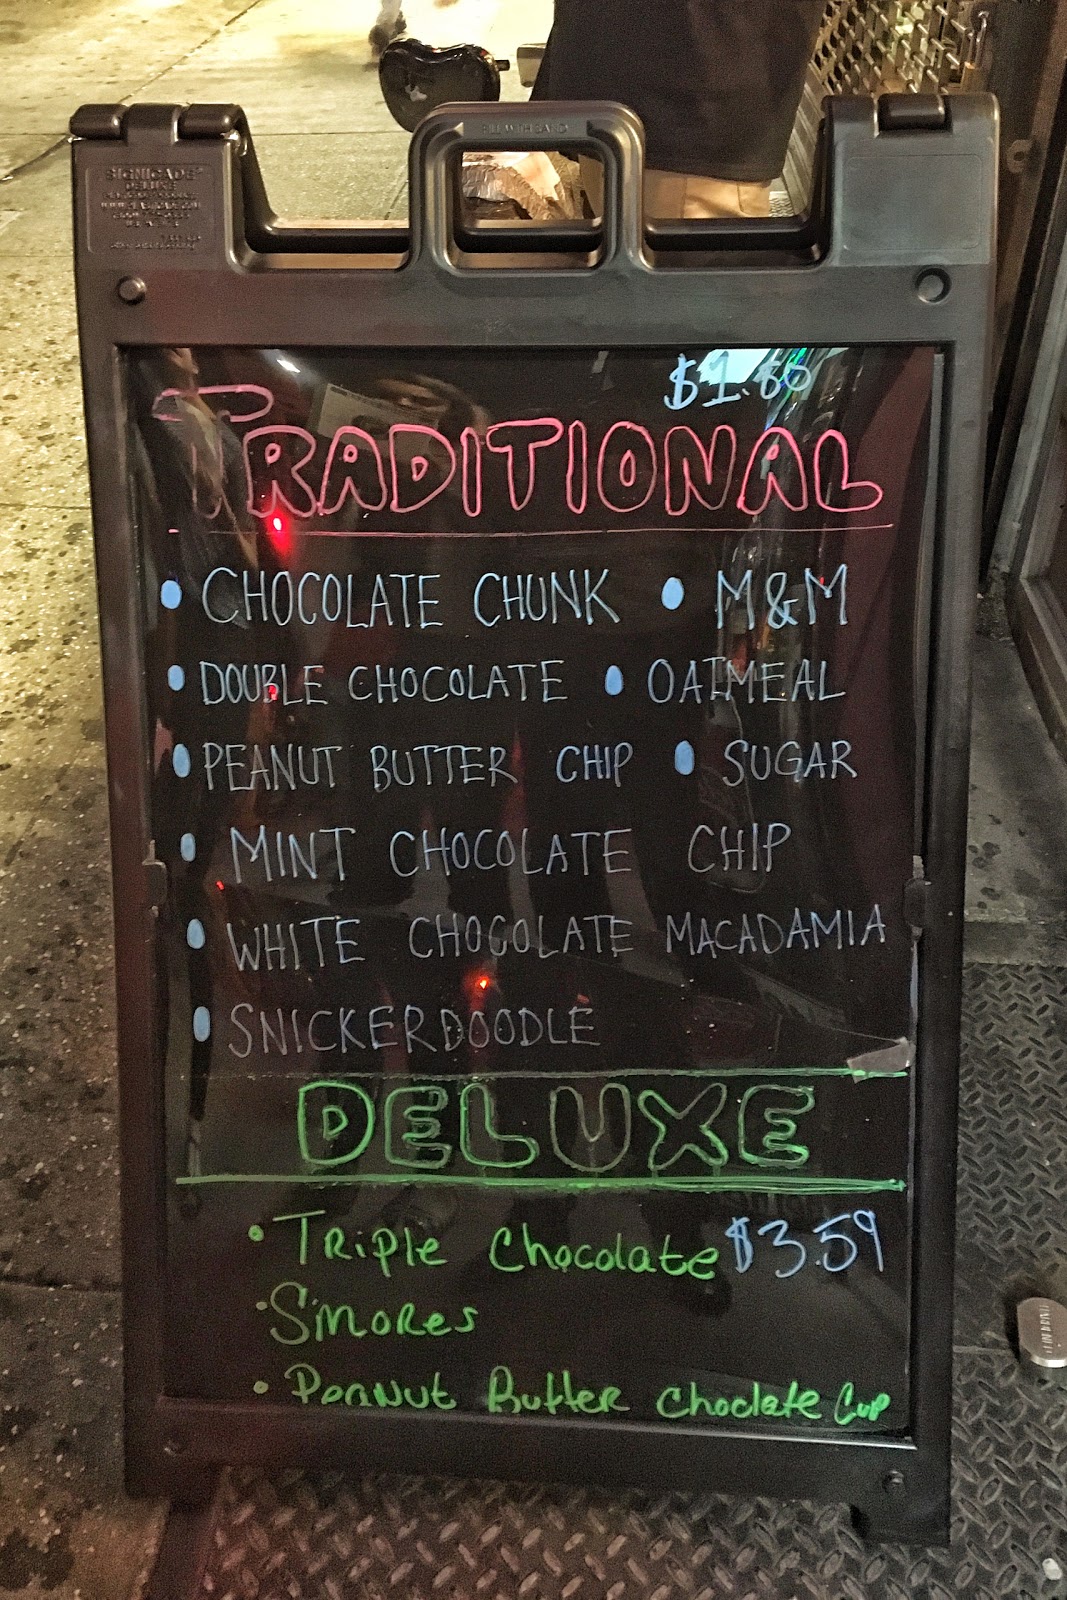 FILL WITH SAND
SIGNICADE
DELUXE
$1.80
TRADITIONAL
• CHOCOLATE CHUNK • M&M
• DOUBLE CHOCOLATE • OATMEAL
• PEANUT BUTTER CHIP • SUGAR
• MINT CHOCOLATE CHIP
• WHITE CHOCOLATE MACADAMIA
• SNICKERDOODLE
DELUXE
• TRiple Chocolate $3.59
• S'moRes
• PeaNut ButteR Choclate Cup